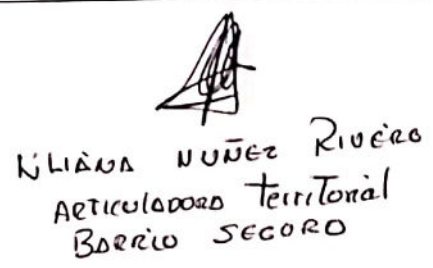 LiLiANA NUÑEZ RIVERO
ARTICULADORA TerriTorial
BARRIO SEGURO